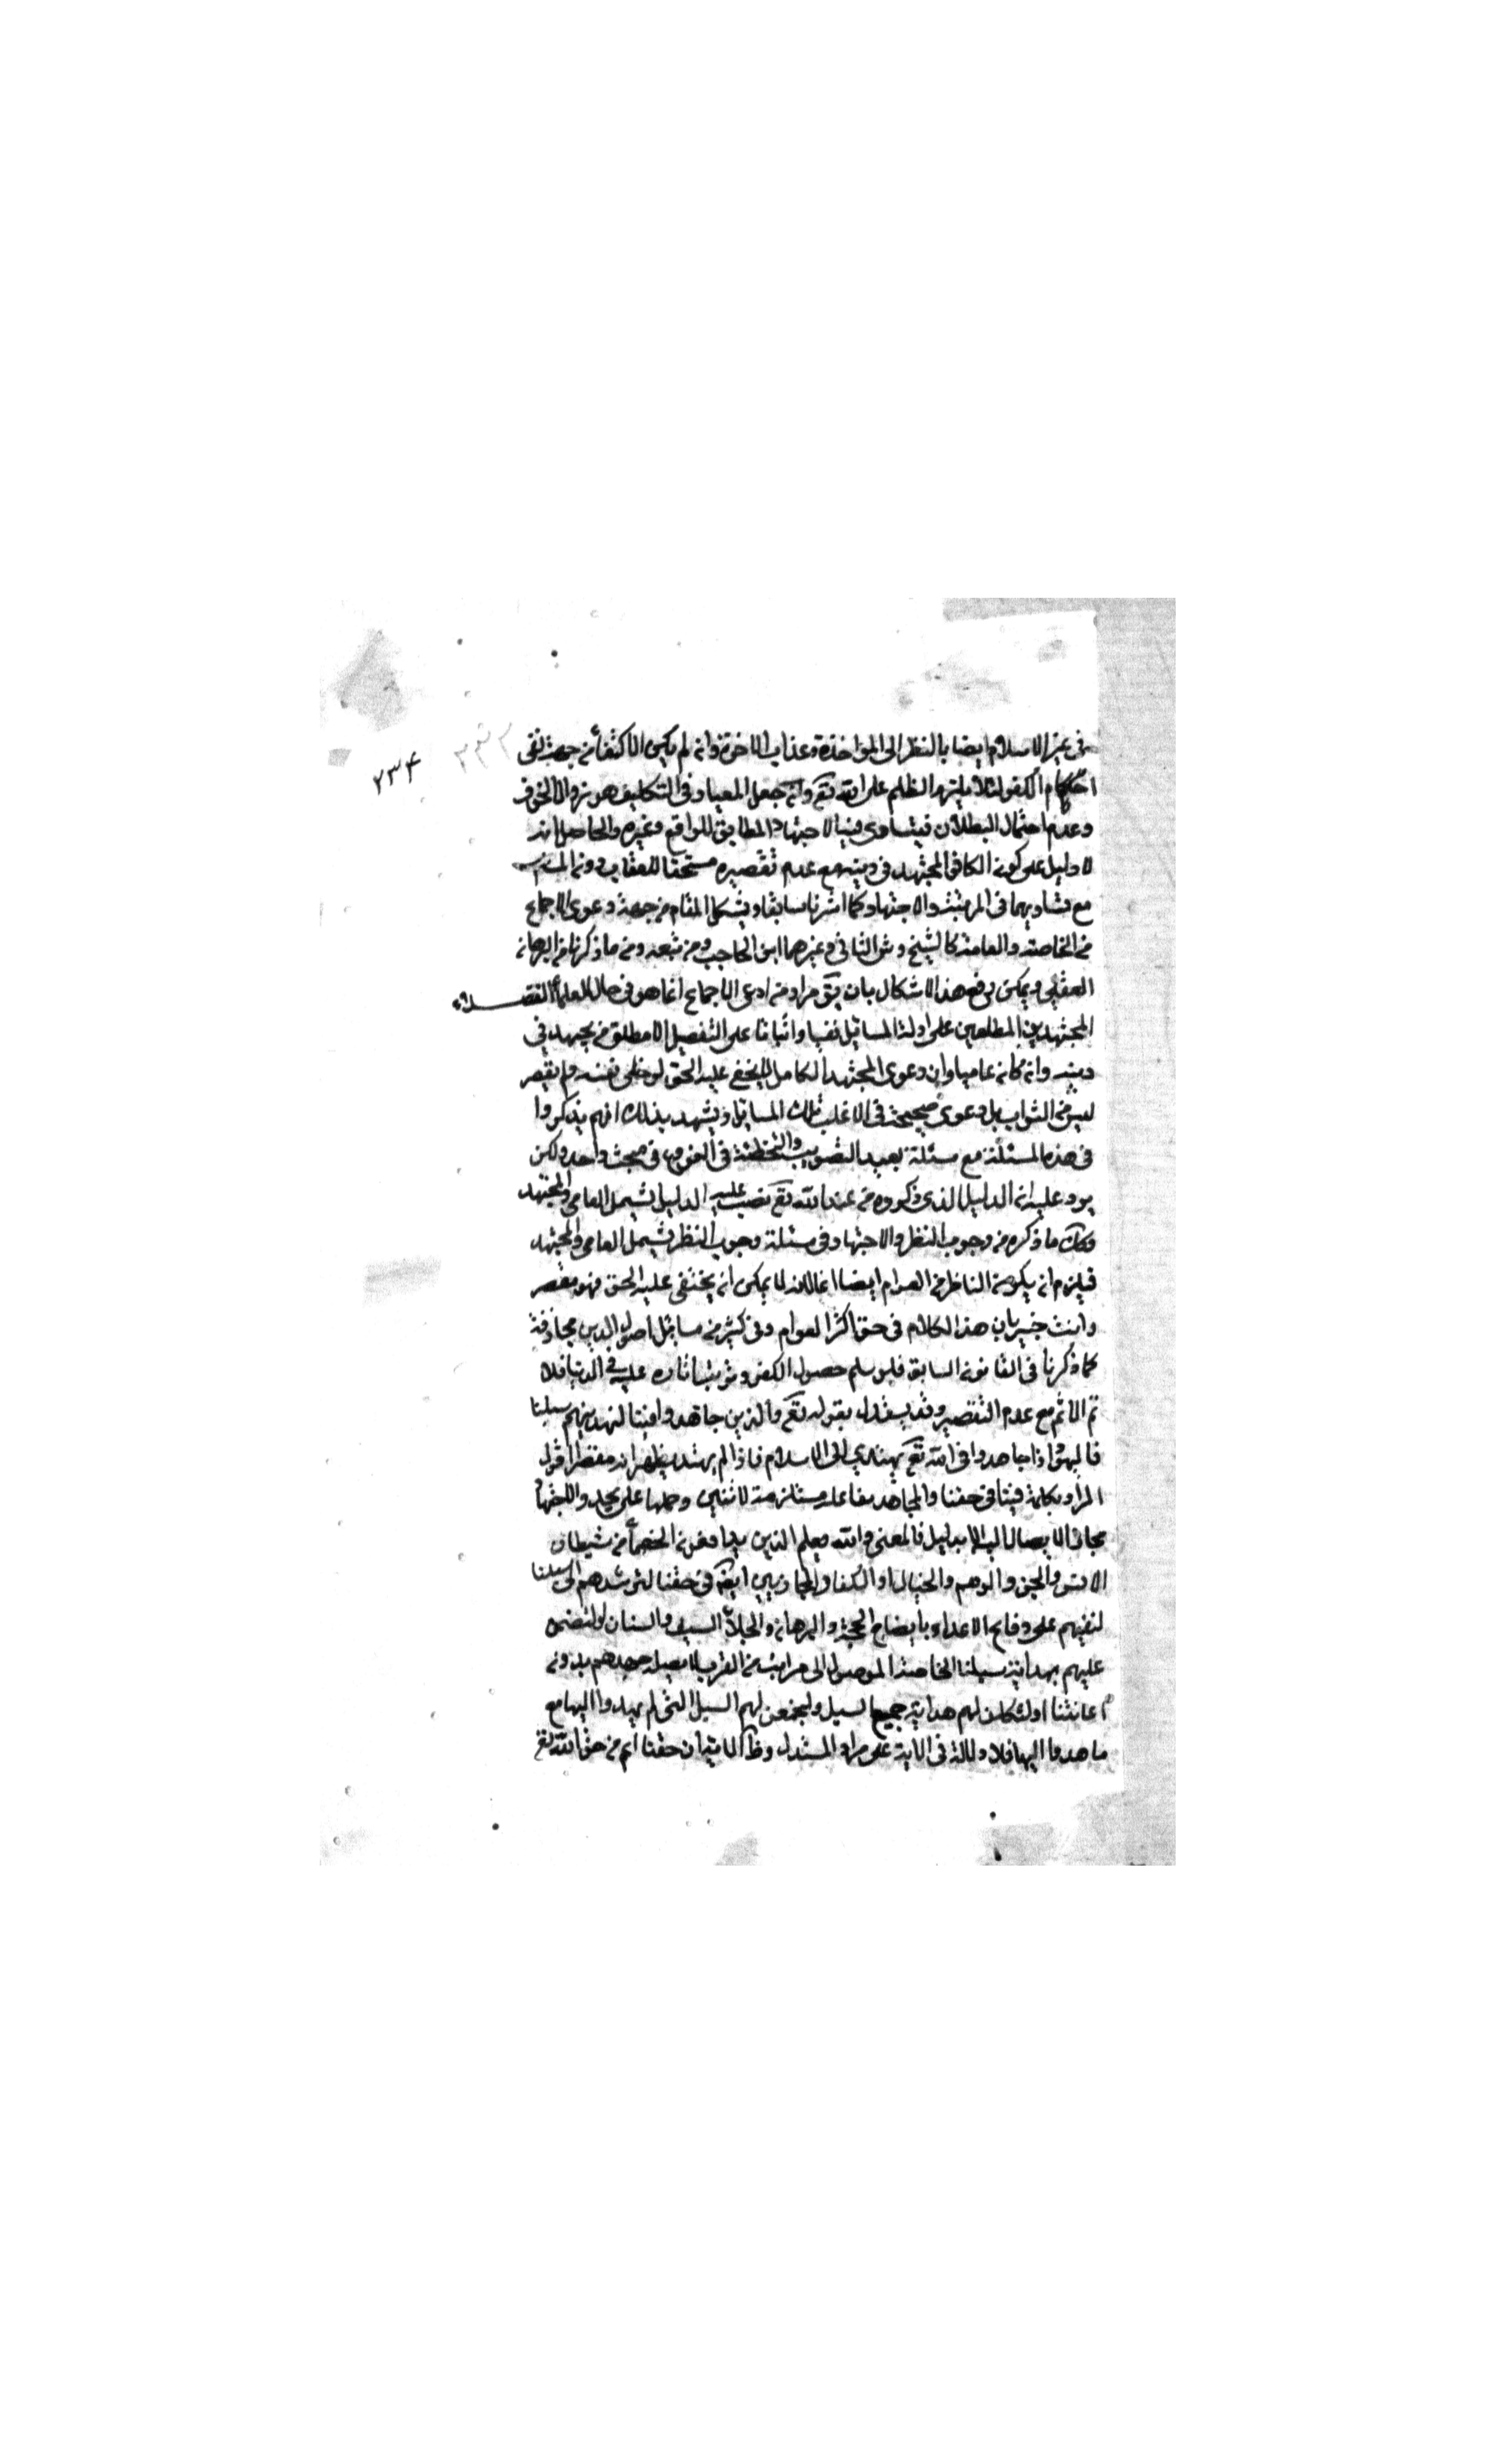 في غير الاسلام ايضا بالنظر الى المؤاخذة وعذاب الاخرة وان لم يكن الاكتفاء من جهة نفى
احكام الكفر لئلا يلزم الظلم على الله تع وان جعل المعيار فى التكليف هو زوال الخوف
وعدم احتمال البطلان فيتساوى فيه الاجتهاد المطابق للواقع وغيره والحاصل انه
لا دليل على كون الكافر المجتهد فى دينه مع عدم تقصيره مستحقا للعقاب دون المسلم
مع تساويهما فى المرتبة والاجتهاد كما اشرنا سابقا ويشكل المقام من جهة دعوى الاجماع
من الخاصة والعامة كالشيخ وش الثانى وغيرهما ابن الحاجب ومن تبعه ومن ما ذكرنا من البرهان
العقلى ويمكن دفع هذا الاشكال بان يق مراد من ادعى الاجماع انما هو فى حال العلماء الفضلاء
المجتهدين المطلعين على ادلة المسائل نفيا واثباتا على التفصيل لا مطلق من يجتهد فى
دينه وان كان عاميا وان دعوى المجتهد الكامل لا يخفى عليه الحق لو خلى نفسه ولم يقصر
ليس من الثواب بل دعوى صحيحة فى الاغلب تلك المسائل ويشهد بذلك انهم يذكروا
فى هذه المسئلة مع مسئلة بعيد التصويب والتخطئة فى الفروع فى مبحث واحد ولكن
يرد عليه ان الدليل الذى ذكروه من عند الله تع نصب عليه الدليل يشمل العامى والمجتهد
وكك ما ذكره من وجوب النظر والاجتهاد فى مسئلة وجوب النظر يشمل العامى والمجتهد
فيلزم ان يكون الناظر من العوام ايضا لا يمكن ان يختفى عليه الحق فهو مقصر
وانت خبير بان هذا الكلام فى حق اكثر العوام وفى كثير من مسائل اصول الدين مجازفة
كما ذكرنا فى القانون السابق فلو سلم حصول الكفر وترتب اثاره عليه فى الدنيا فلا
ثم الاثم مع عدم التقصير وقد يستدل بقوله تع والذين جاهدوا فينا لنهدينهم سبلنا
فاليهود اذا جاهدوا فى الله تع يهتدى الى الاسلام فاذا لم يهتد يظهر انه مقصر اقول
المراد بكلمة فينا فى حقنا والمجاهدة مفاعلة مستلزمة لاثنين وحملها على الجد والاجتهاد
مجاز لا يصار اليه الا بدليل فالمعنى والله يعلم الذين يدافعون الخصماء من شيطان
الانس والجن والوهم والخيال او الكفار المحاربين ايض فى حقنا لنرشدهم الى سبلنا
لنقيهم على دفاع الاعداء بايضاح الحجة والبرهان والجلاء السيف والسنان او لنضمن
عليهم بهداية سبلنا الخاصة الموصول الى مراتب من القرب لا يصله جهدهم بدون
اعانتنا او لئكان لهم هداية جميع السبل وليجمعن لهم السبل التى لم يهدوا اليها مع
ما هدوا اليها فلا دلالة فى الاية على مراد المستدل وظاهر الاية ان حقنا اعم من حق الله تع
٢٣٤